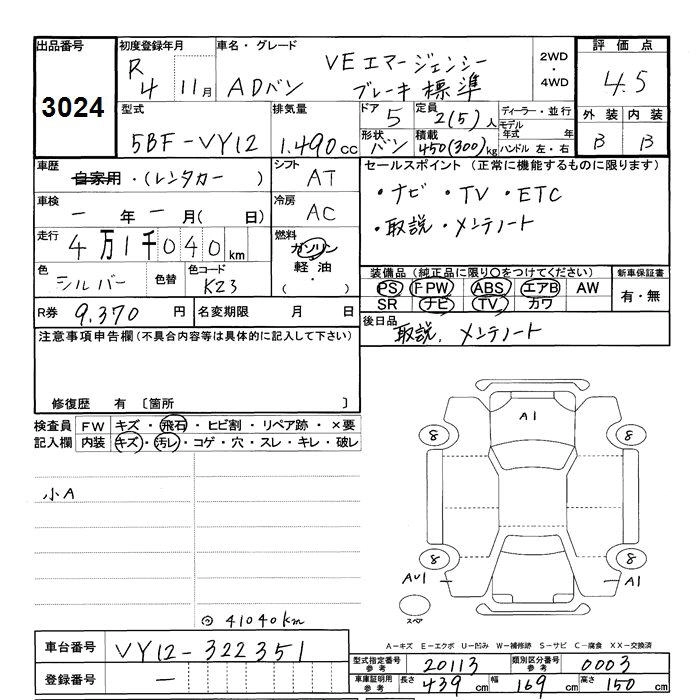 出品番号
3024
初度登録年月
R 4 11月
車名・グレード
VE エマージェンシー
ADバン ブレーキ標準
2WD
・
4WD
評価点
4.5
外装 内装
B B
型式
5BF-VY12
排気量
1.490cc
ドア 5
形状 バン
定員 2(5)人
積載 450(300)kg
ディーラー・並行
モデル年式 年
ハンドル 左・右
車歴
自家用・(レンタカー )
シフト AT
車検
― 年 ― 月( 日)
冷房 AC
走行
4万1千040km
燃料
ガソリン
軽油
( ・ )
色 シルバー 色替
色コード K23
R券 9.370円
名変期限 月 日
セールスポイント(正常に機能するものに限ります)
・ナビ ・TV ・ETC
・取説・メンテノート
装備品(純正品に限り○をつけてください)
PS PW ABS エアB AW
SR ナビ TV カワ
新車保証書
有・無
後日品
取説、メンテノート
注意事項申告欄(不具合内容等は具体的に記入して下さい)
修復歴 有 〔箇所 〕
検査員 FW キズ・飛石・ヒビ割・リペア跡・×要
記入欄 内装 キズ・汚レ・コゲ・穴・スレ・キレ・破レ
小A
41040km
A1
8 8
8 8
AU1 A1
スペア
A-キズ E-エクボ U-凹み W-補修跡 S-サビ C-腐食 XX-交換済
車台番号 VY12-322351
登録番号 ―
型式指定番号 参考 20113
類別区分番号 参考 0003
車庫証明用 参考 長さ 439cm 幅 169cm 高さ 150cm